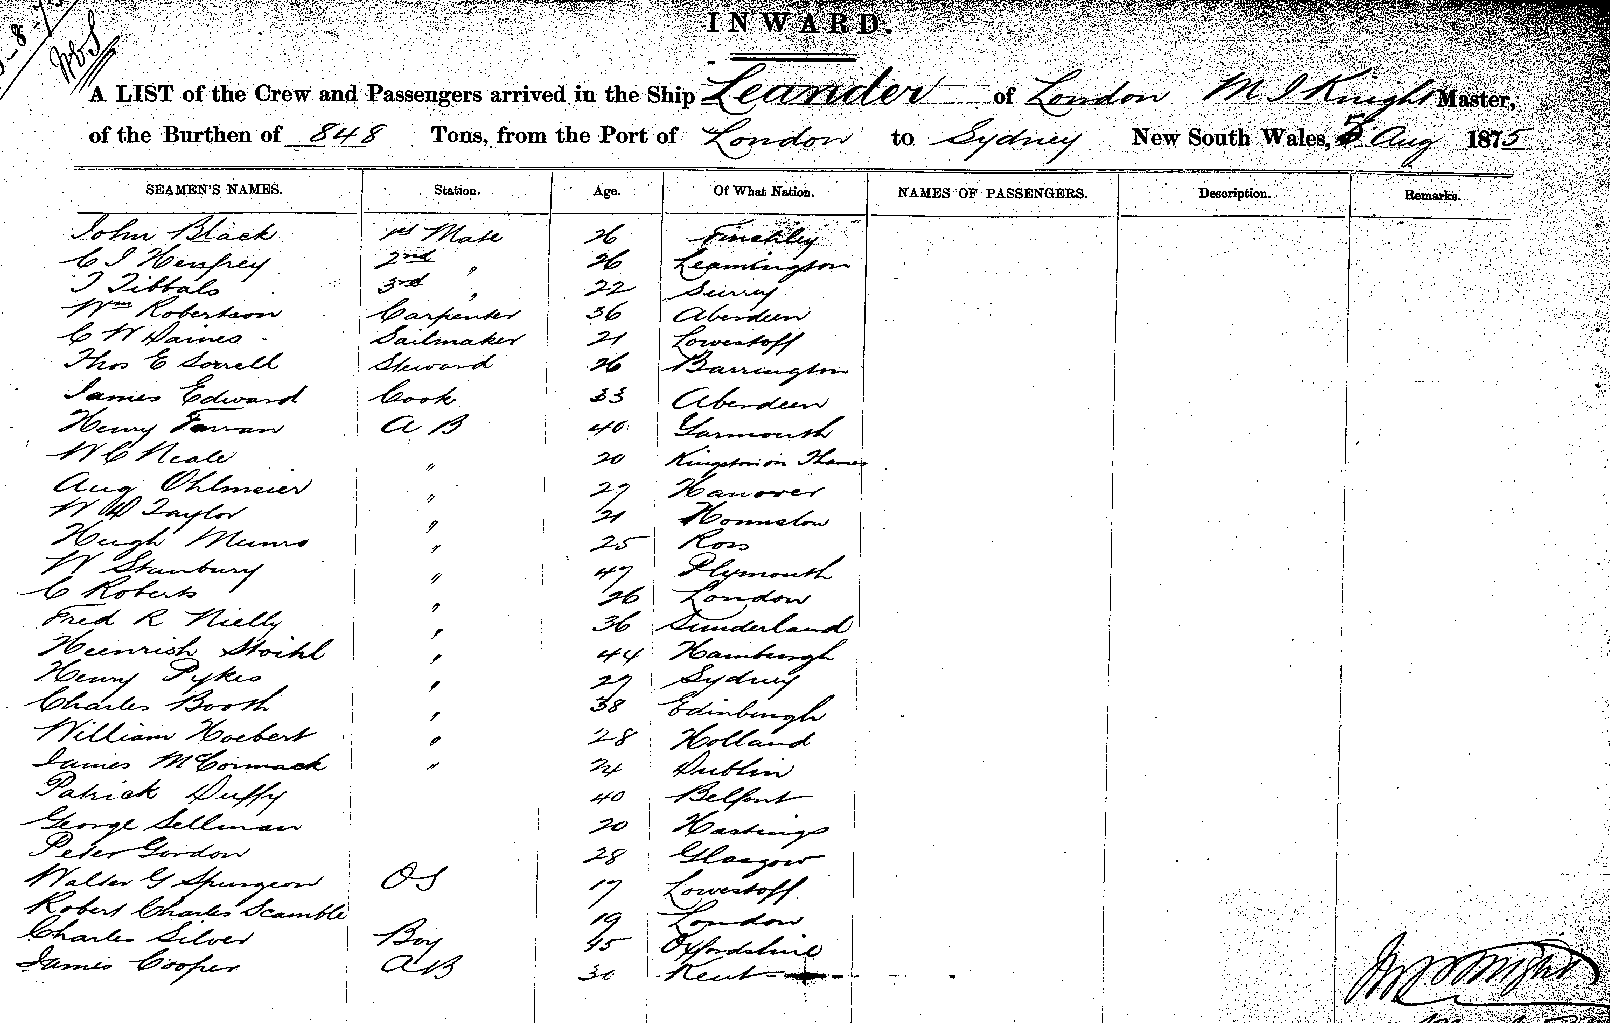 INWARD.
A LIST of the Crew and Passengers arrived in the Ship Leander of London M I Knight Master,
of the Burthen of 848 Tons, from the Port of London to Sydney New South Wales, 5 Aug 1875
SEAMEN'S NAMES. Station. Age. Of What Nation. NAMES OF PASSENGERS. Description. Remarks.
John Black 1st Mate 26 Finchley
C I Henfrey 2nd " 26 Leamington
T Tibbals 3rd " 22 Surrey
Wm Robertson Carpenter 36 Aberdeen
C W Daines Sailmaker 21 Lowestoff
Thos E Sorrell Steward 26 Barrington
James Edward Cook 33 Aberdeen
Henry Farran A B 40 Yarmouth
W C Neale " 20 Kingston on Thames
Aug Ohlmeier " 27 Hanover
W D Taylor " 21 Hounslow
Hugh Munro " 25 Ross
W Stanbury " 47 Plymouth
C Roberts " 26 London
Fred R Nielly " 36 Sunderland
Heinrich Stoihl " 44 Hamburgh
Henry Pykes " 27 Sydney
Charles Booth " 38 Edinburgh
William Hoebert " 28 Holland
James McCormack " 24 Dublin
Patrick Duffy 40 Belfast
George Sellman 20 Hastings
Peter Gordon 28 Glasgow
Walter G Spurgeon O S 17 Lowestoff
Robert Charles Scamble 19 London
Charles Silver Boy 15 Oxfordshire
James Cooper A B 30 Kent